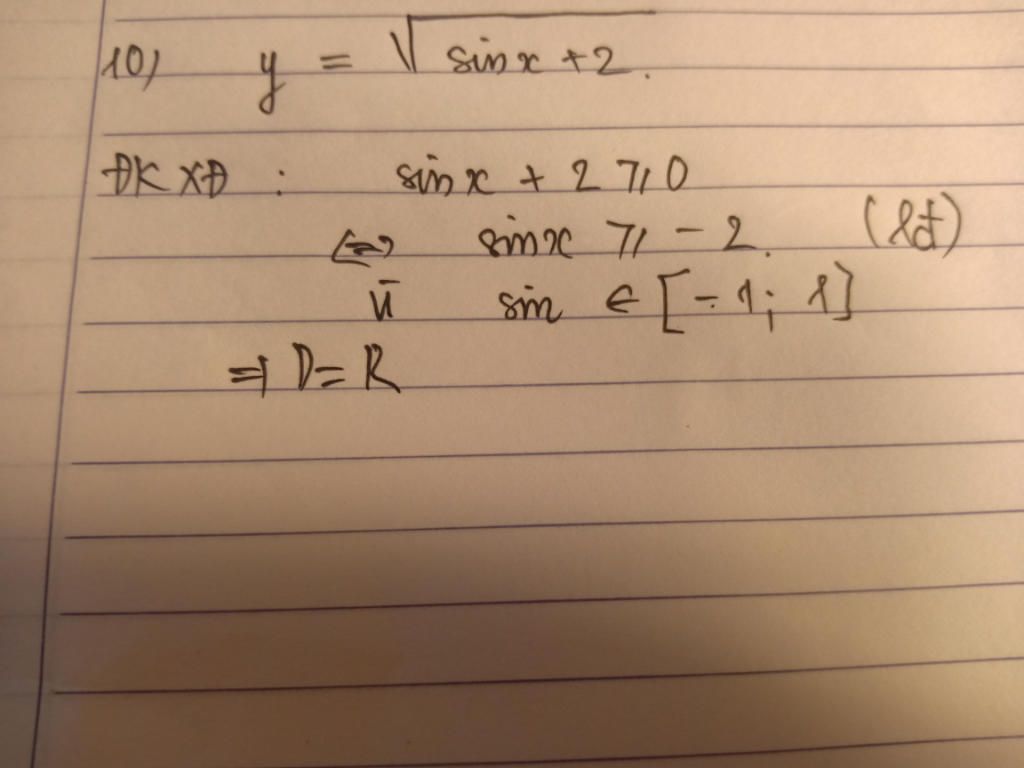 10) y = √sinx + 2.
ĐKXĐ : sinx + 2 ⩾ 0
⇔ sinx ⩾ -2. (lđ)
vì sin ∈ [-1; 1]
⇒ D = R